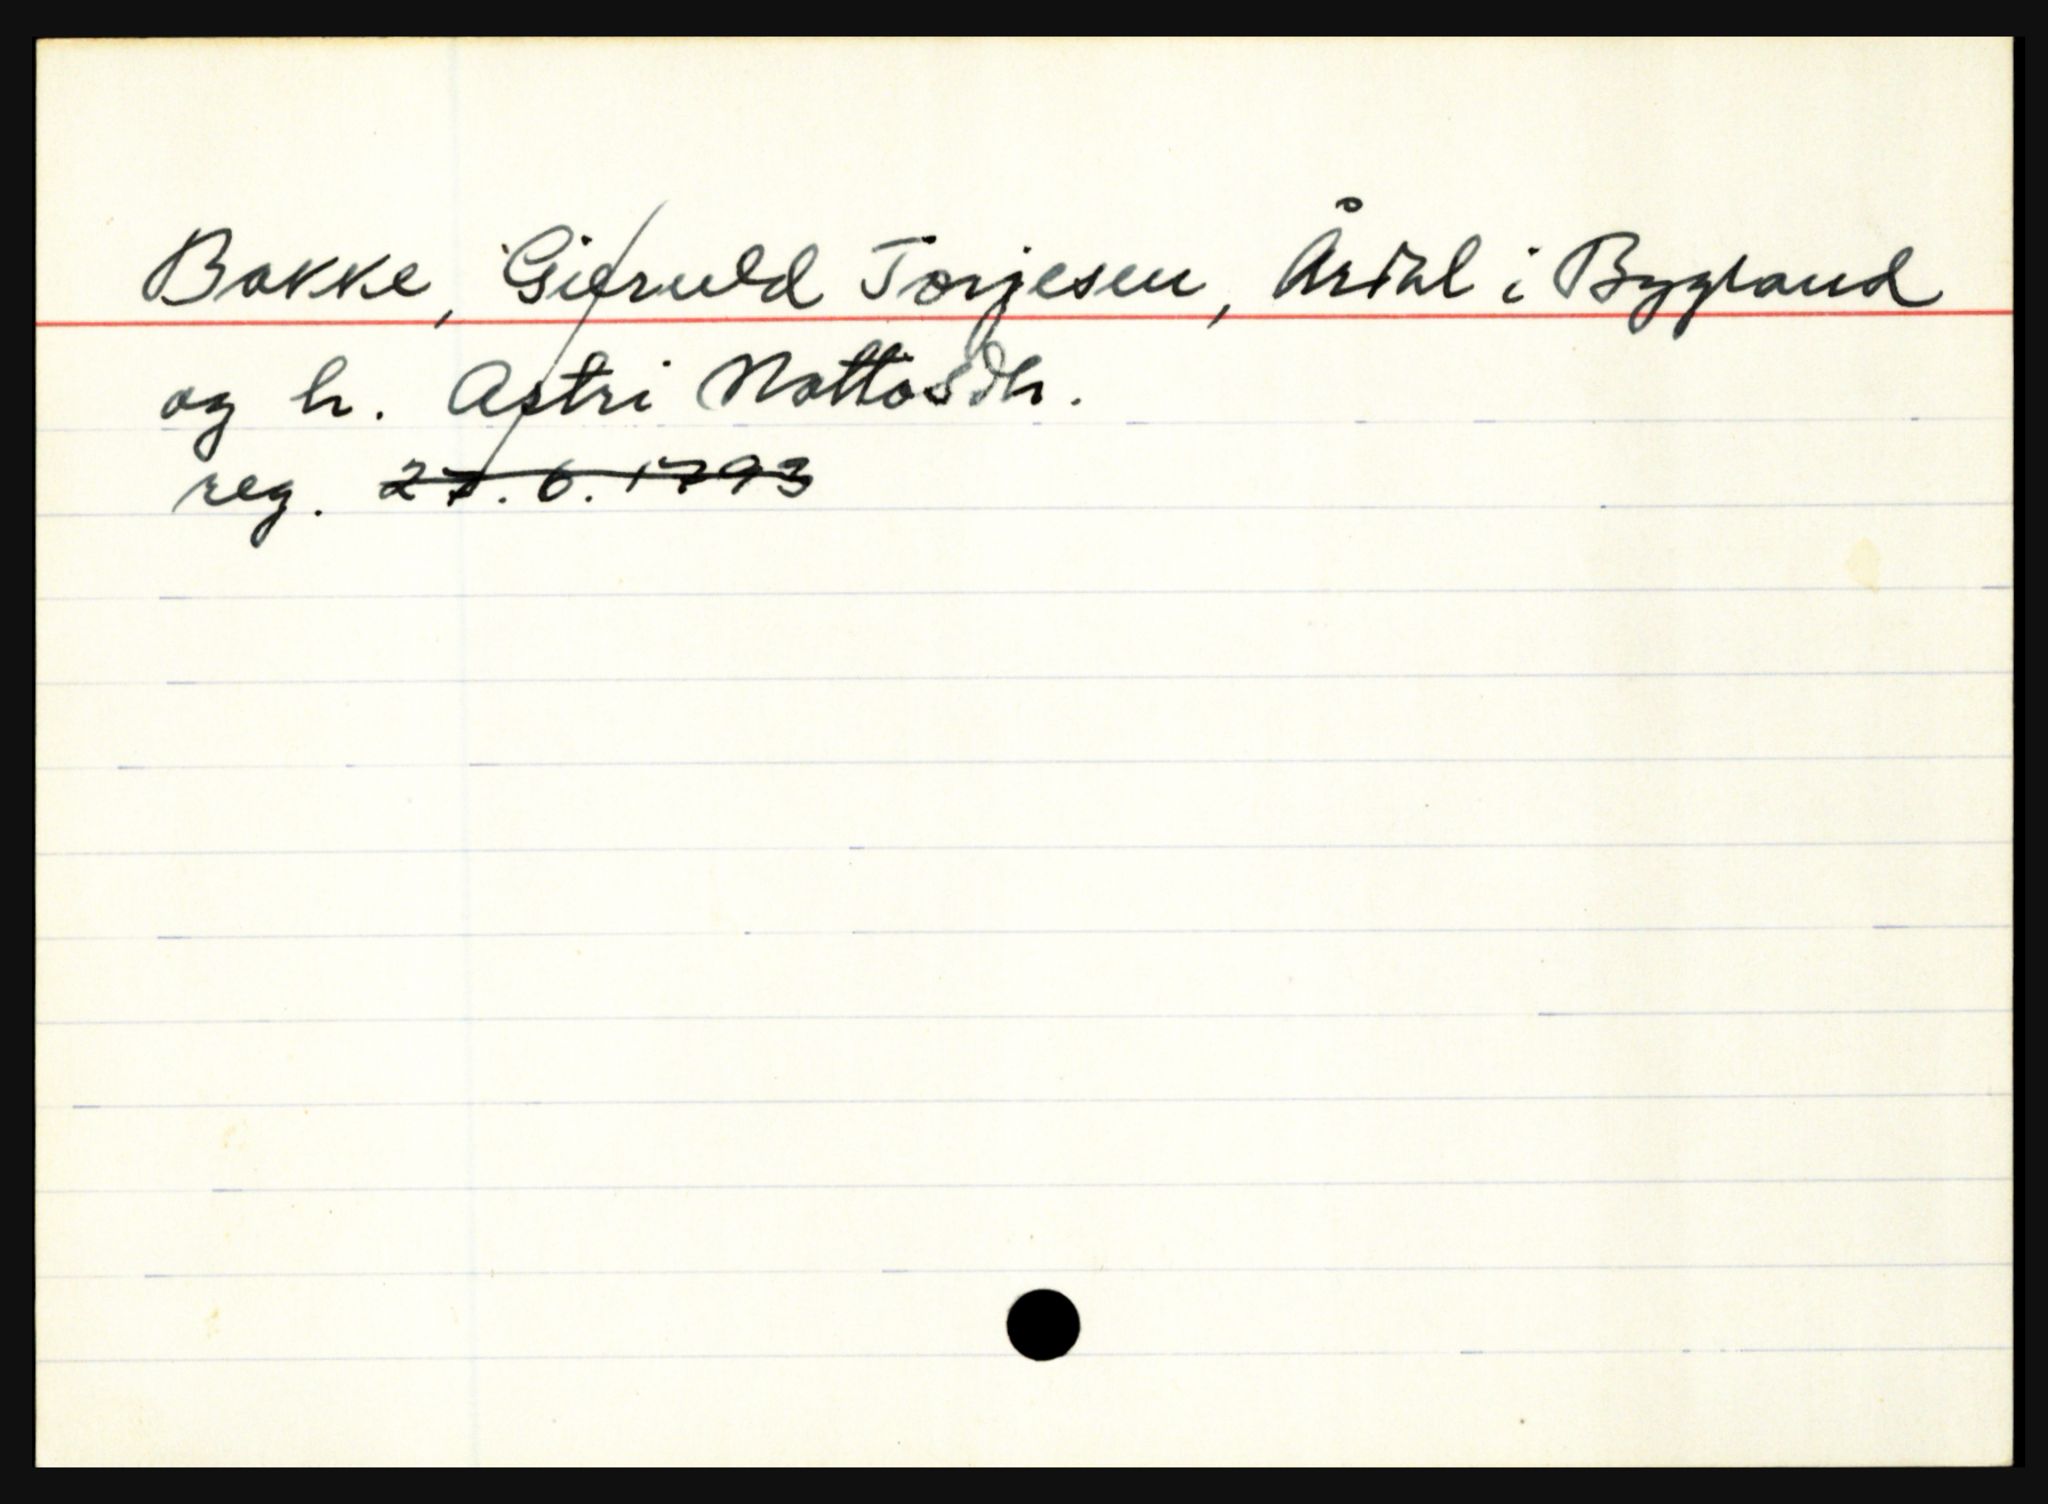 Bakke, Gieruld Torjesen, Årdal i Bygland
og h. Astri Nottosdh.
reg. 27.6.1793